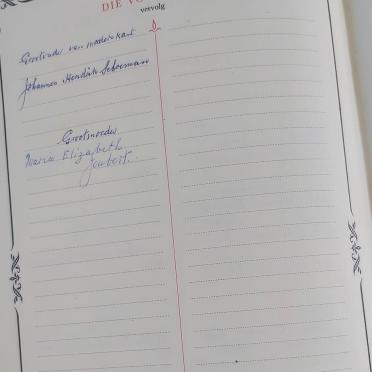 DIE VO
vervolg
Grootvader van moederskant
Johannes Hendrik Schoeman
Grootmoeder
Maria Elizabeth
Joubert.